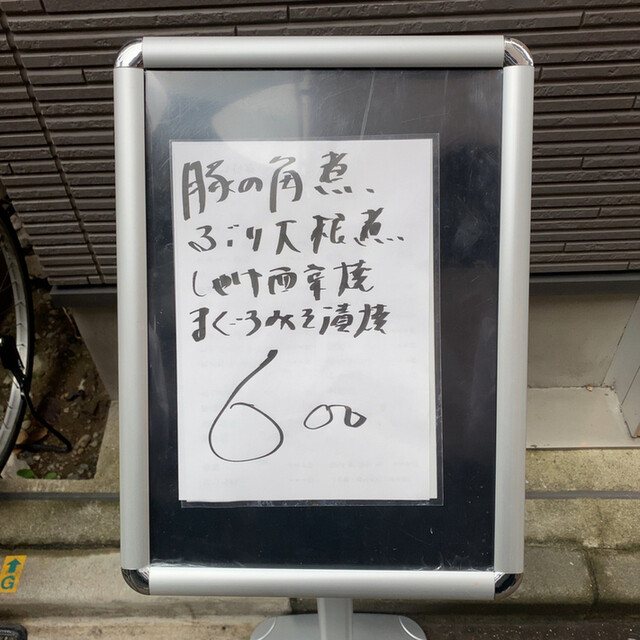 豚の角煮、
ぶり大根煮
しゃけ西京焼
まぐろみそ漬焼
600
G